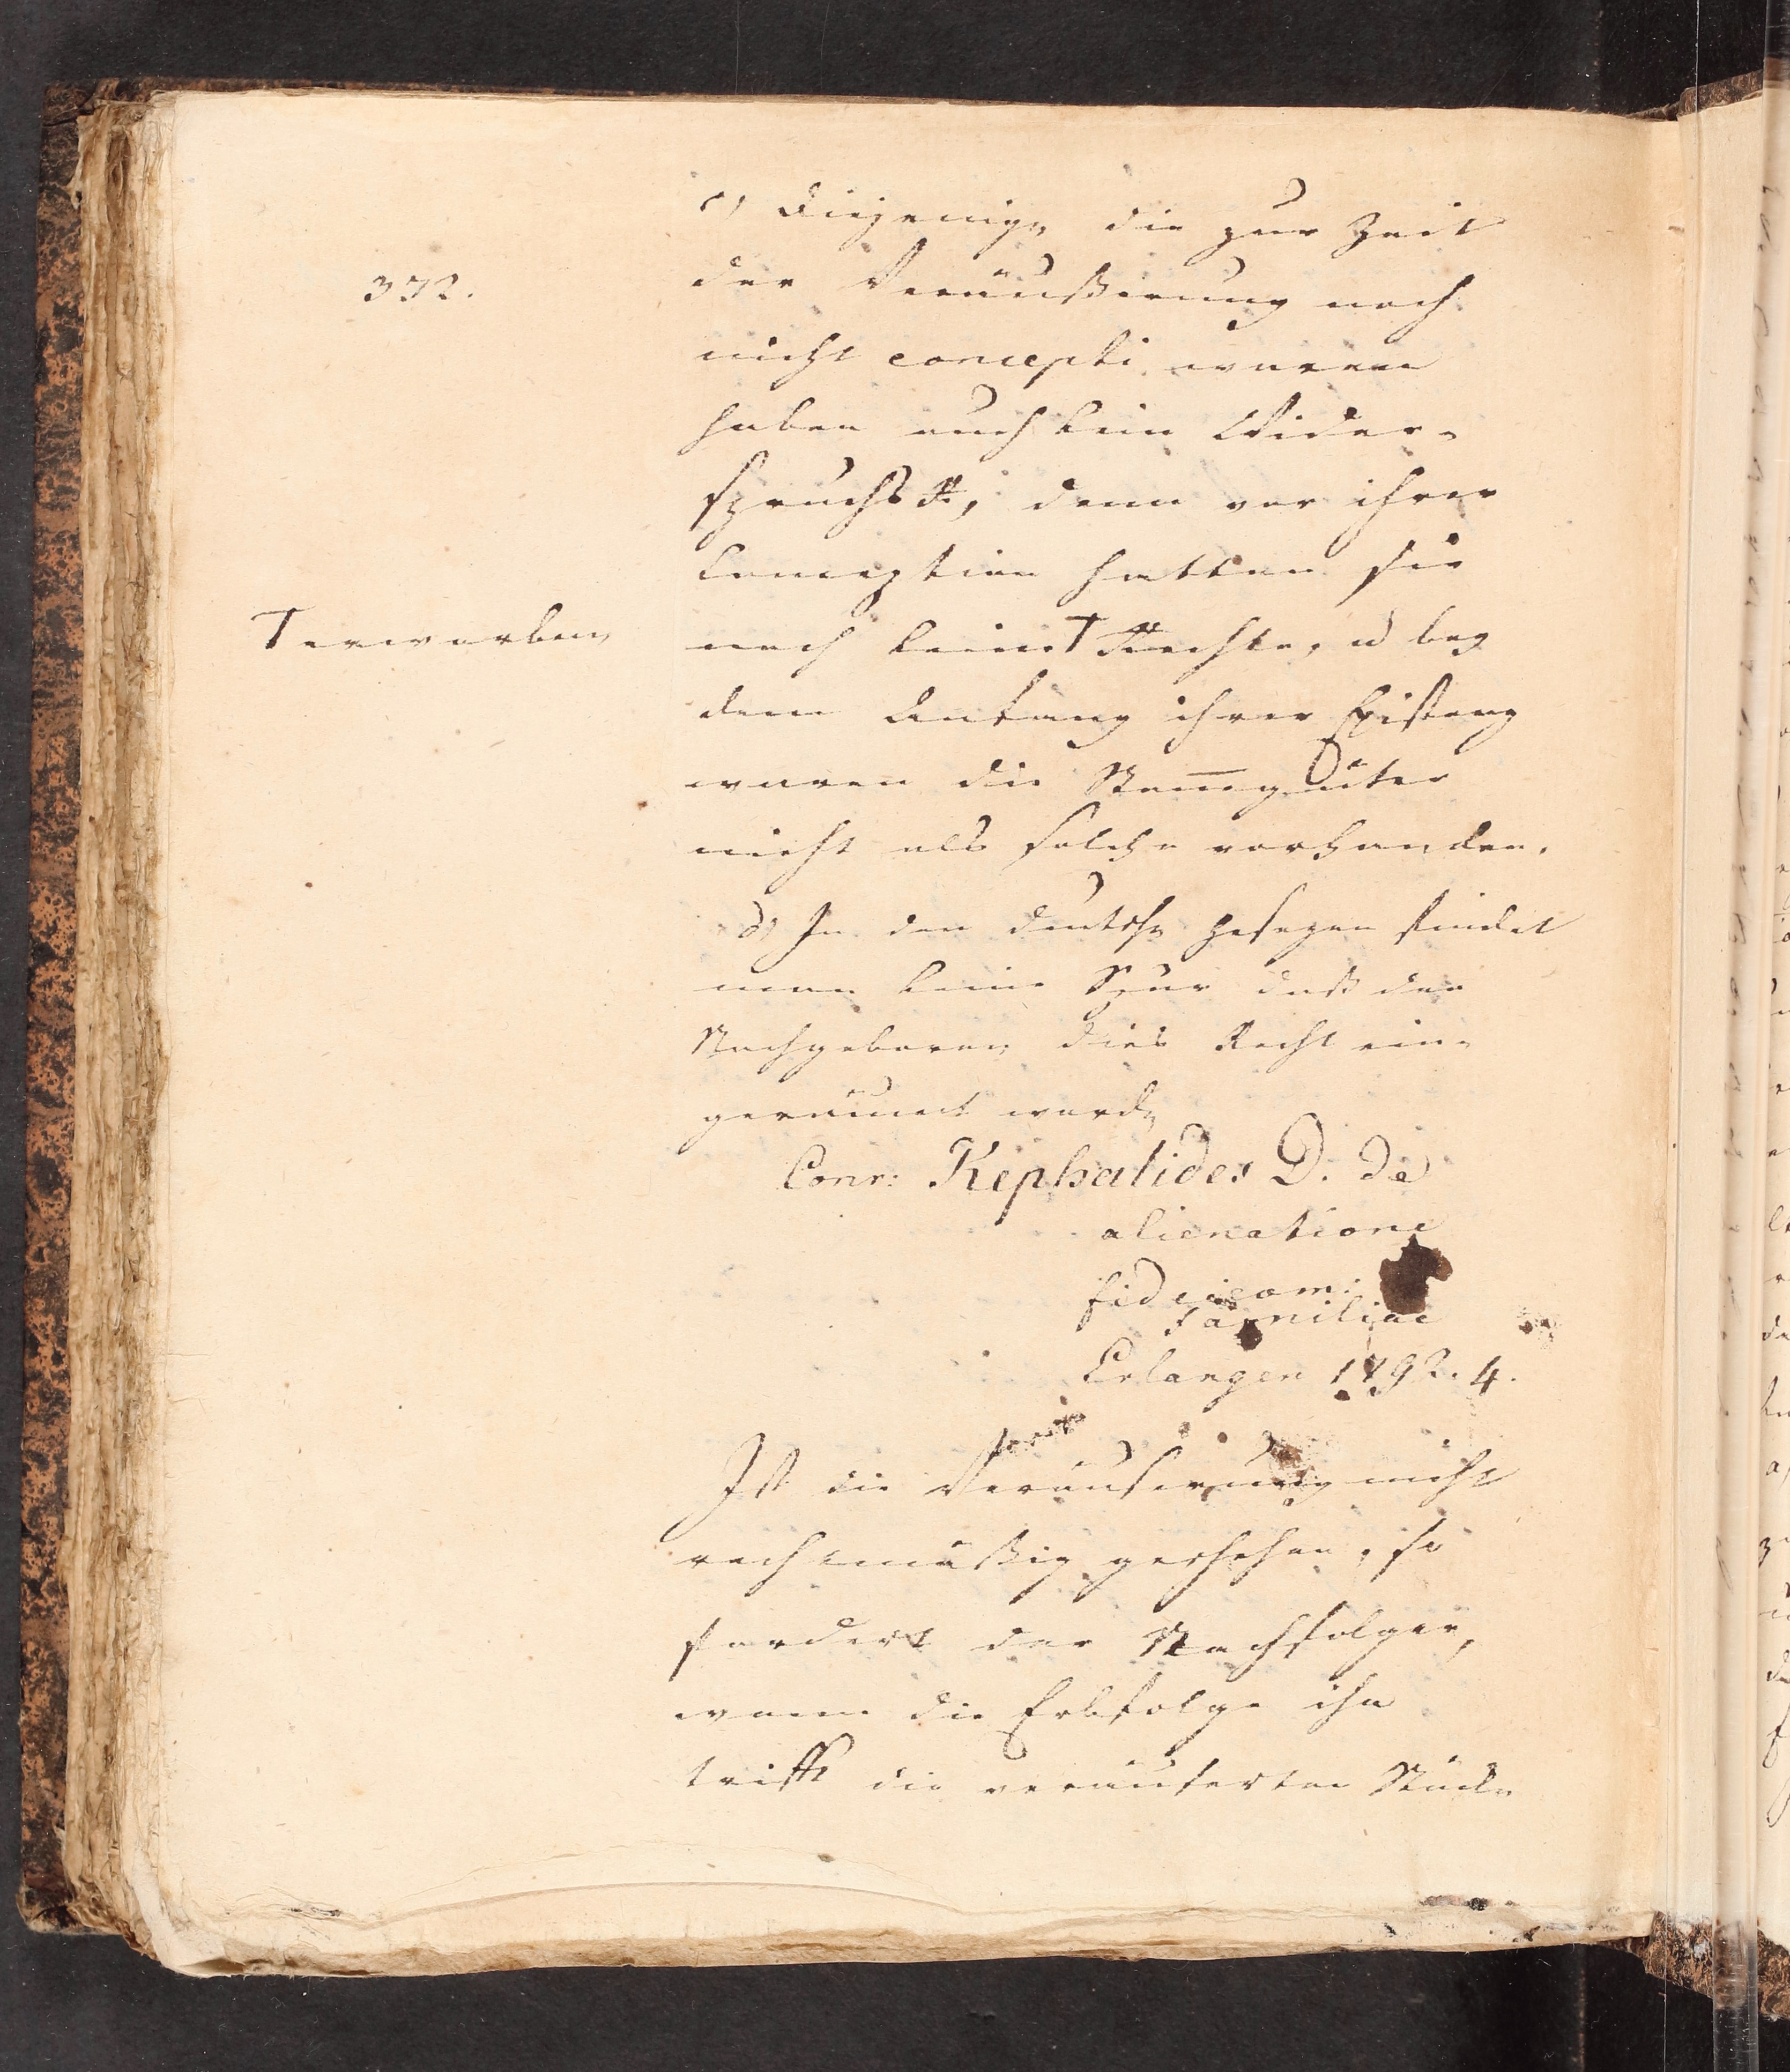 372.
c) diejenigen die zur Zeit
der Veräußerung noch
nicht concepti waren
haben auch kein Wider-
spruchsR., denn vor ihrer
Conception hatten sie
noch keine T Rechte, u bey
T erworben
dem Anfang ihrer Existenz
waren die Stam̅güter
nicht als solche vorhanden.
d) In den deutschen Gesezen findet
man keine Spur daß den
Nachgeboren dies Recht ein-
geräumt worden
Conr: Kephalides D. de
alienatione
fideicom:
familiae
Erlangen 1792. 4.
Ist die Veräuserung nicht
rechtmäßig geschehen, so
fordert der Nachfolger,
wenn die Erbfolge ihn
trifft die veräuserten Stücke